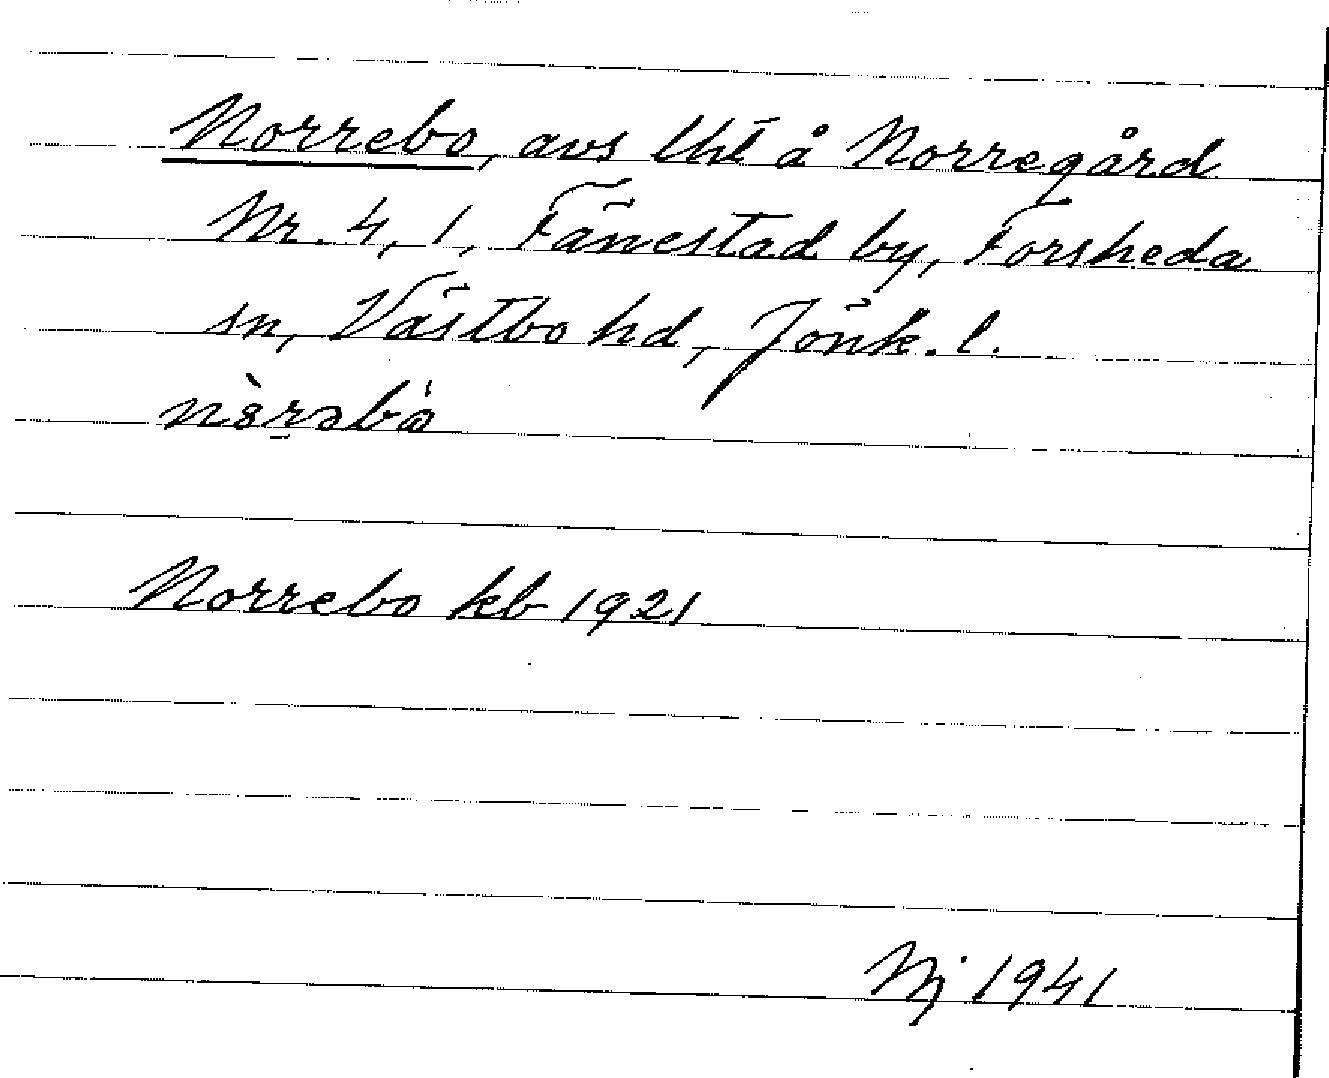 Norrebo, avs lht å Norregård
Nr. 4, 1, Fänestad by, Forsheda
sn, Västbo hd, Jönk. l.
Norrebo kb 1921
Nj 1941